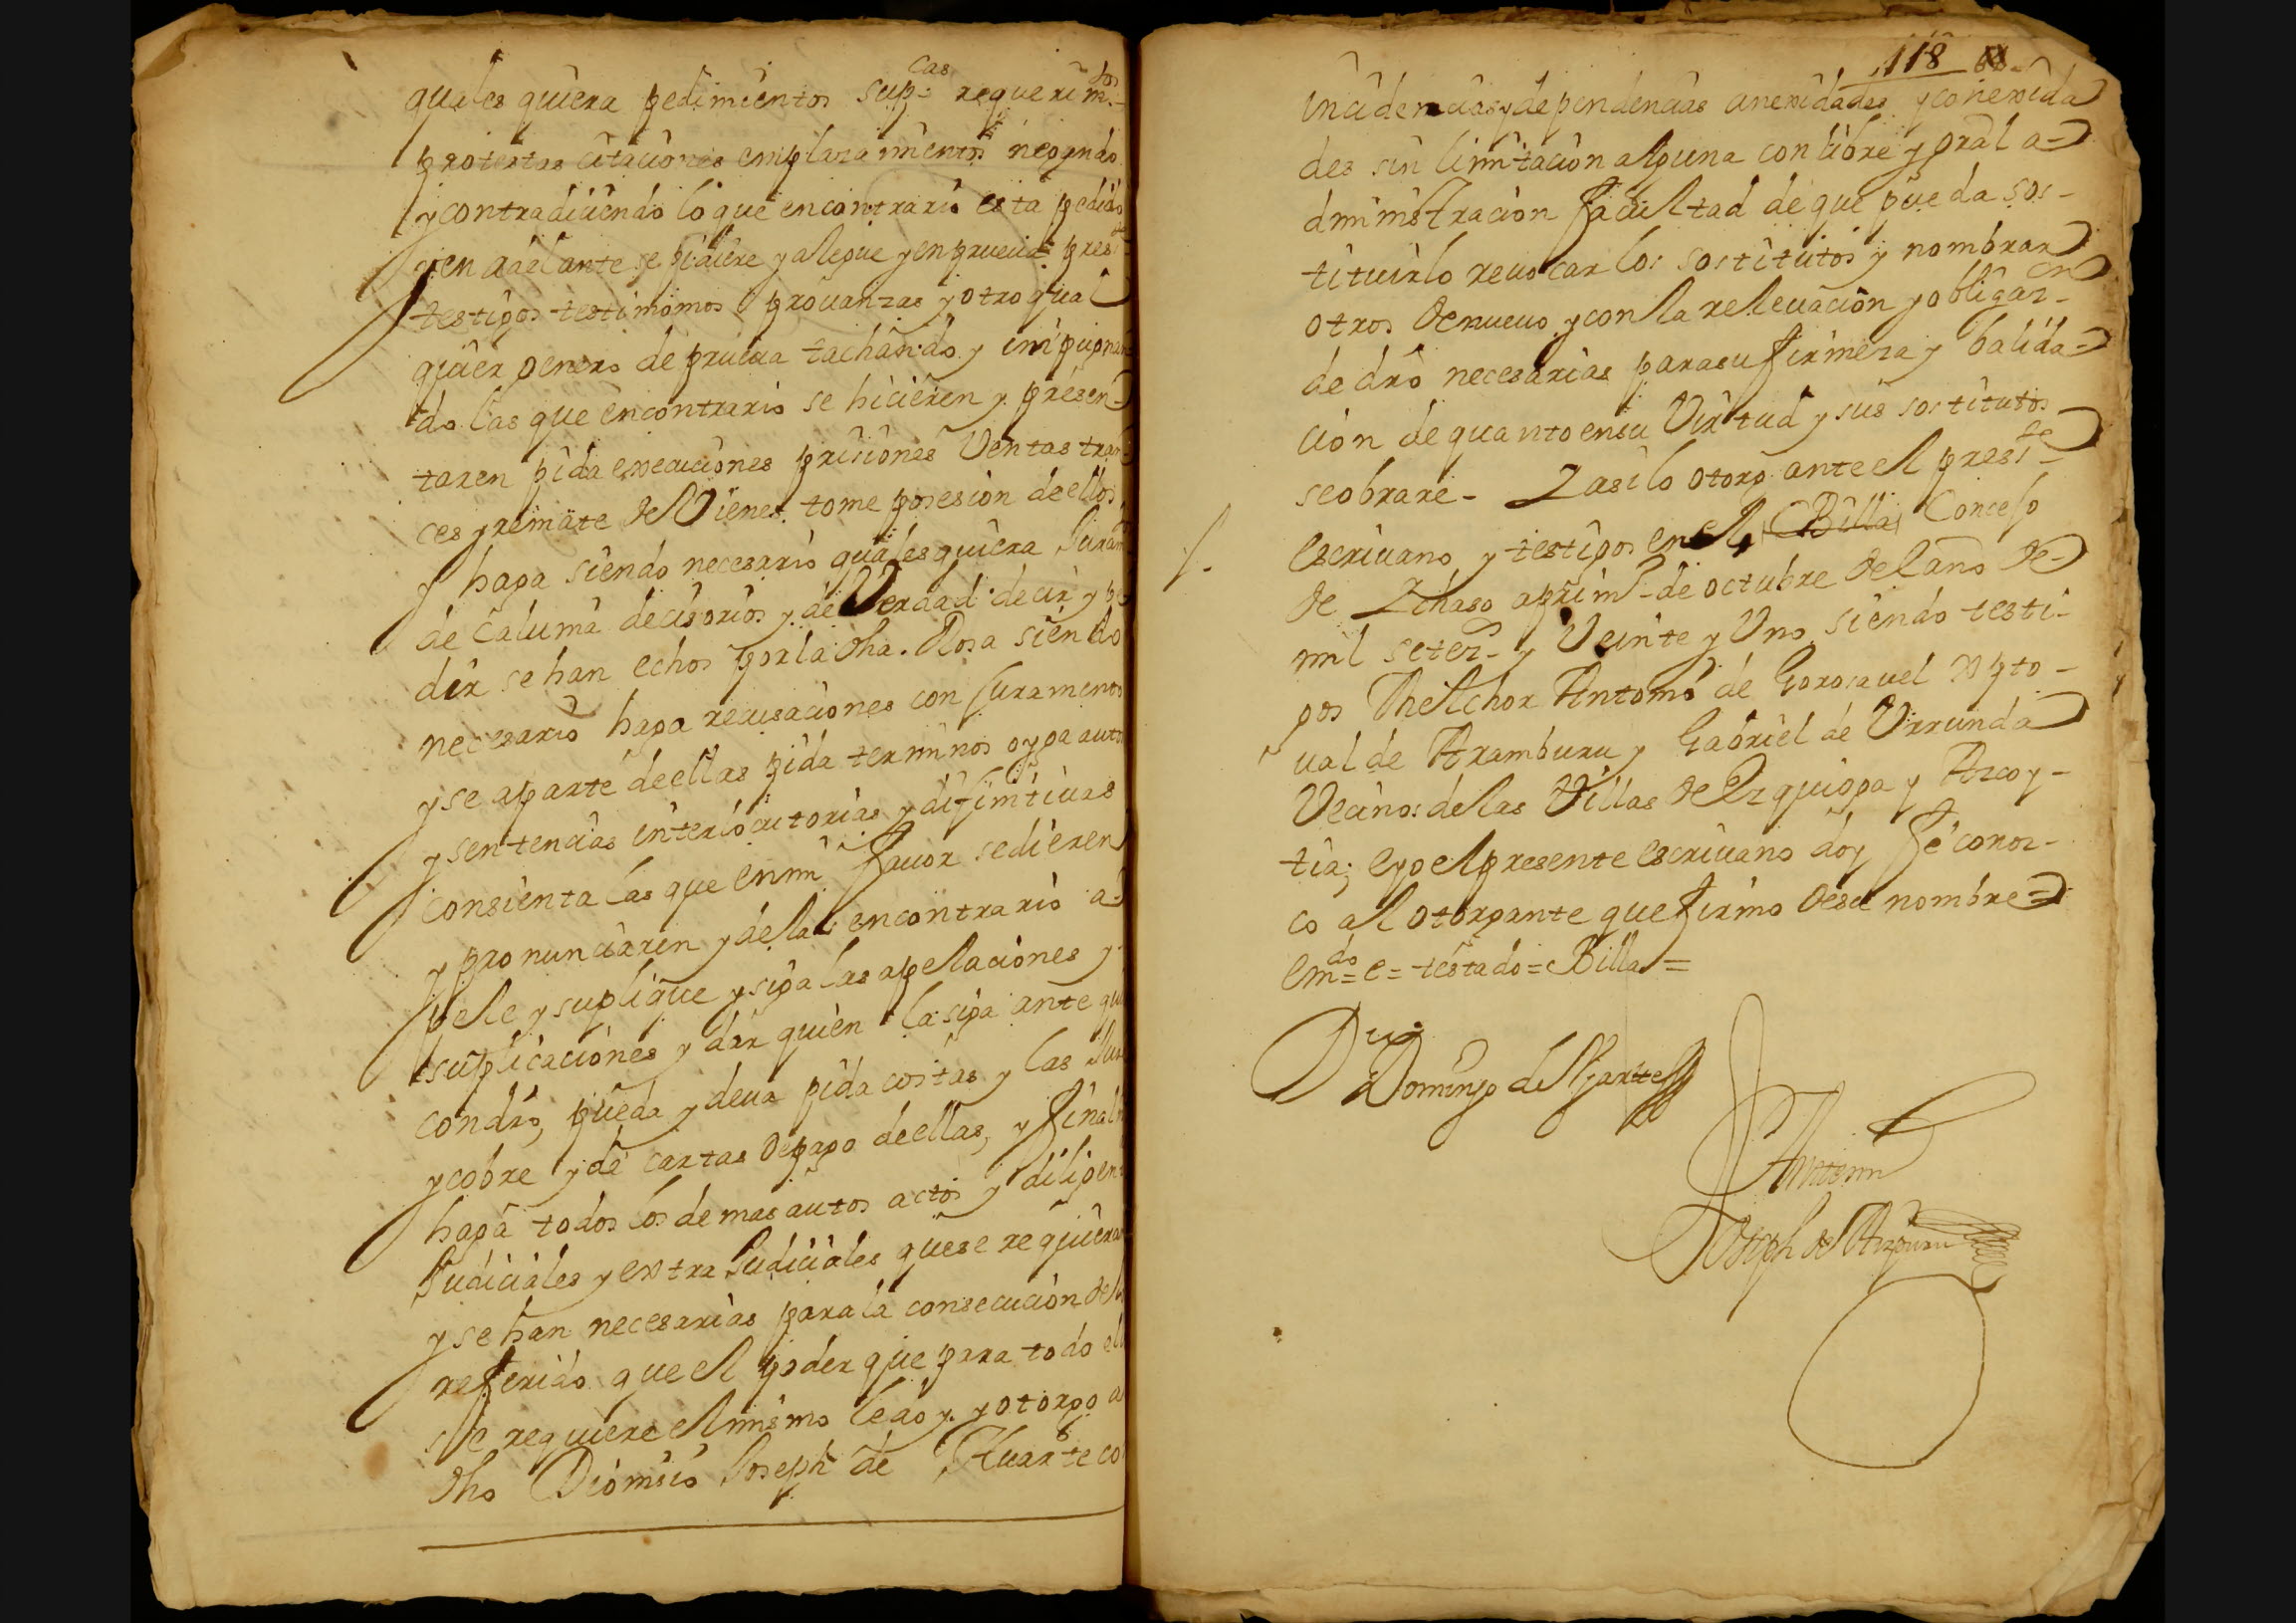 quales quiera pedimientos sup.cas requerim.tos
protestas citaciones emplazamientos negando
y contradiciendo lo que en contrario esta pedido
y en adelante se pidiere y alegue y en prueua pres.te
testigos testimonios prouanzas y otro qual
quier genero de prueua tachando y impugnan
do las que en contrario se hicieren y presen-
taren pida execuciones prisiones Ventas tran-
ces y remate de Vienes tome posesion de ellos
y haga siendo necesario quales quiera Juram.tos
de Calumá decisorios y de Verdad decir y pe
dir se han echos por la dha. Rosa siendo
necesario haga recusaciones con Juramento
y se aparte de ellas pida terminos oyga autos
y sentencias interlocutorias y difinitiuas
consienta las que en mi fauor se dieren
y pronunciaren y de las en contrario a-
pele y suplique y siga las apelaciones y
suplicaciones y dar quien la siga ante qui
con dro, pueda y deua pida costas y las Jure
y cobre y dé cartas de pago de ellas, y final
haga todos los demas autos actos y diligen
Judiciales y extra Judiciales que se requieran
y se han necesarias para la consecucion de lo
referido que el poder que para todo ello
se requiere el mismo le doy y otorgo a
dho Dionisio Joseph de Huarte co
118
incidencias y dependencias anexidades y conexida
des sin limitacion alguna con libre y gral a-
dministracion facultad de que pueda sos-
tituirlo reuocar los sostitutos y nombrar
otros de nueuo y con la releuacion y obligaz-on
de dro necesarias para su firmeza y balida-
cion de quanto en su Virtud y sus sostitutos
se obrare - Y asi lo otorg. ante el pres.te
escriuano y testigos en el Billa Concejo
de Ichaso a prim.o de octubre del año de
mil setez.s y Veinte y Uno siendo testi-
gos Melchor Antonio de Gorosauel Xpto-
ual de Aramburu y Gabriel de Urrunda
Vecinos de las Villas de Ezquioga y Azcoy-
tia; e yo el presente escriuano doy fé conoz-
co al otorgante que firmo de su nombre =
em.do = e = testado = Billa =
Domingo de Ygartu
Ante mi
Joseph de Aizpuru